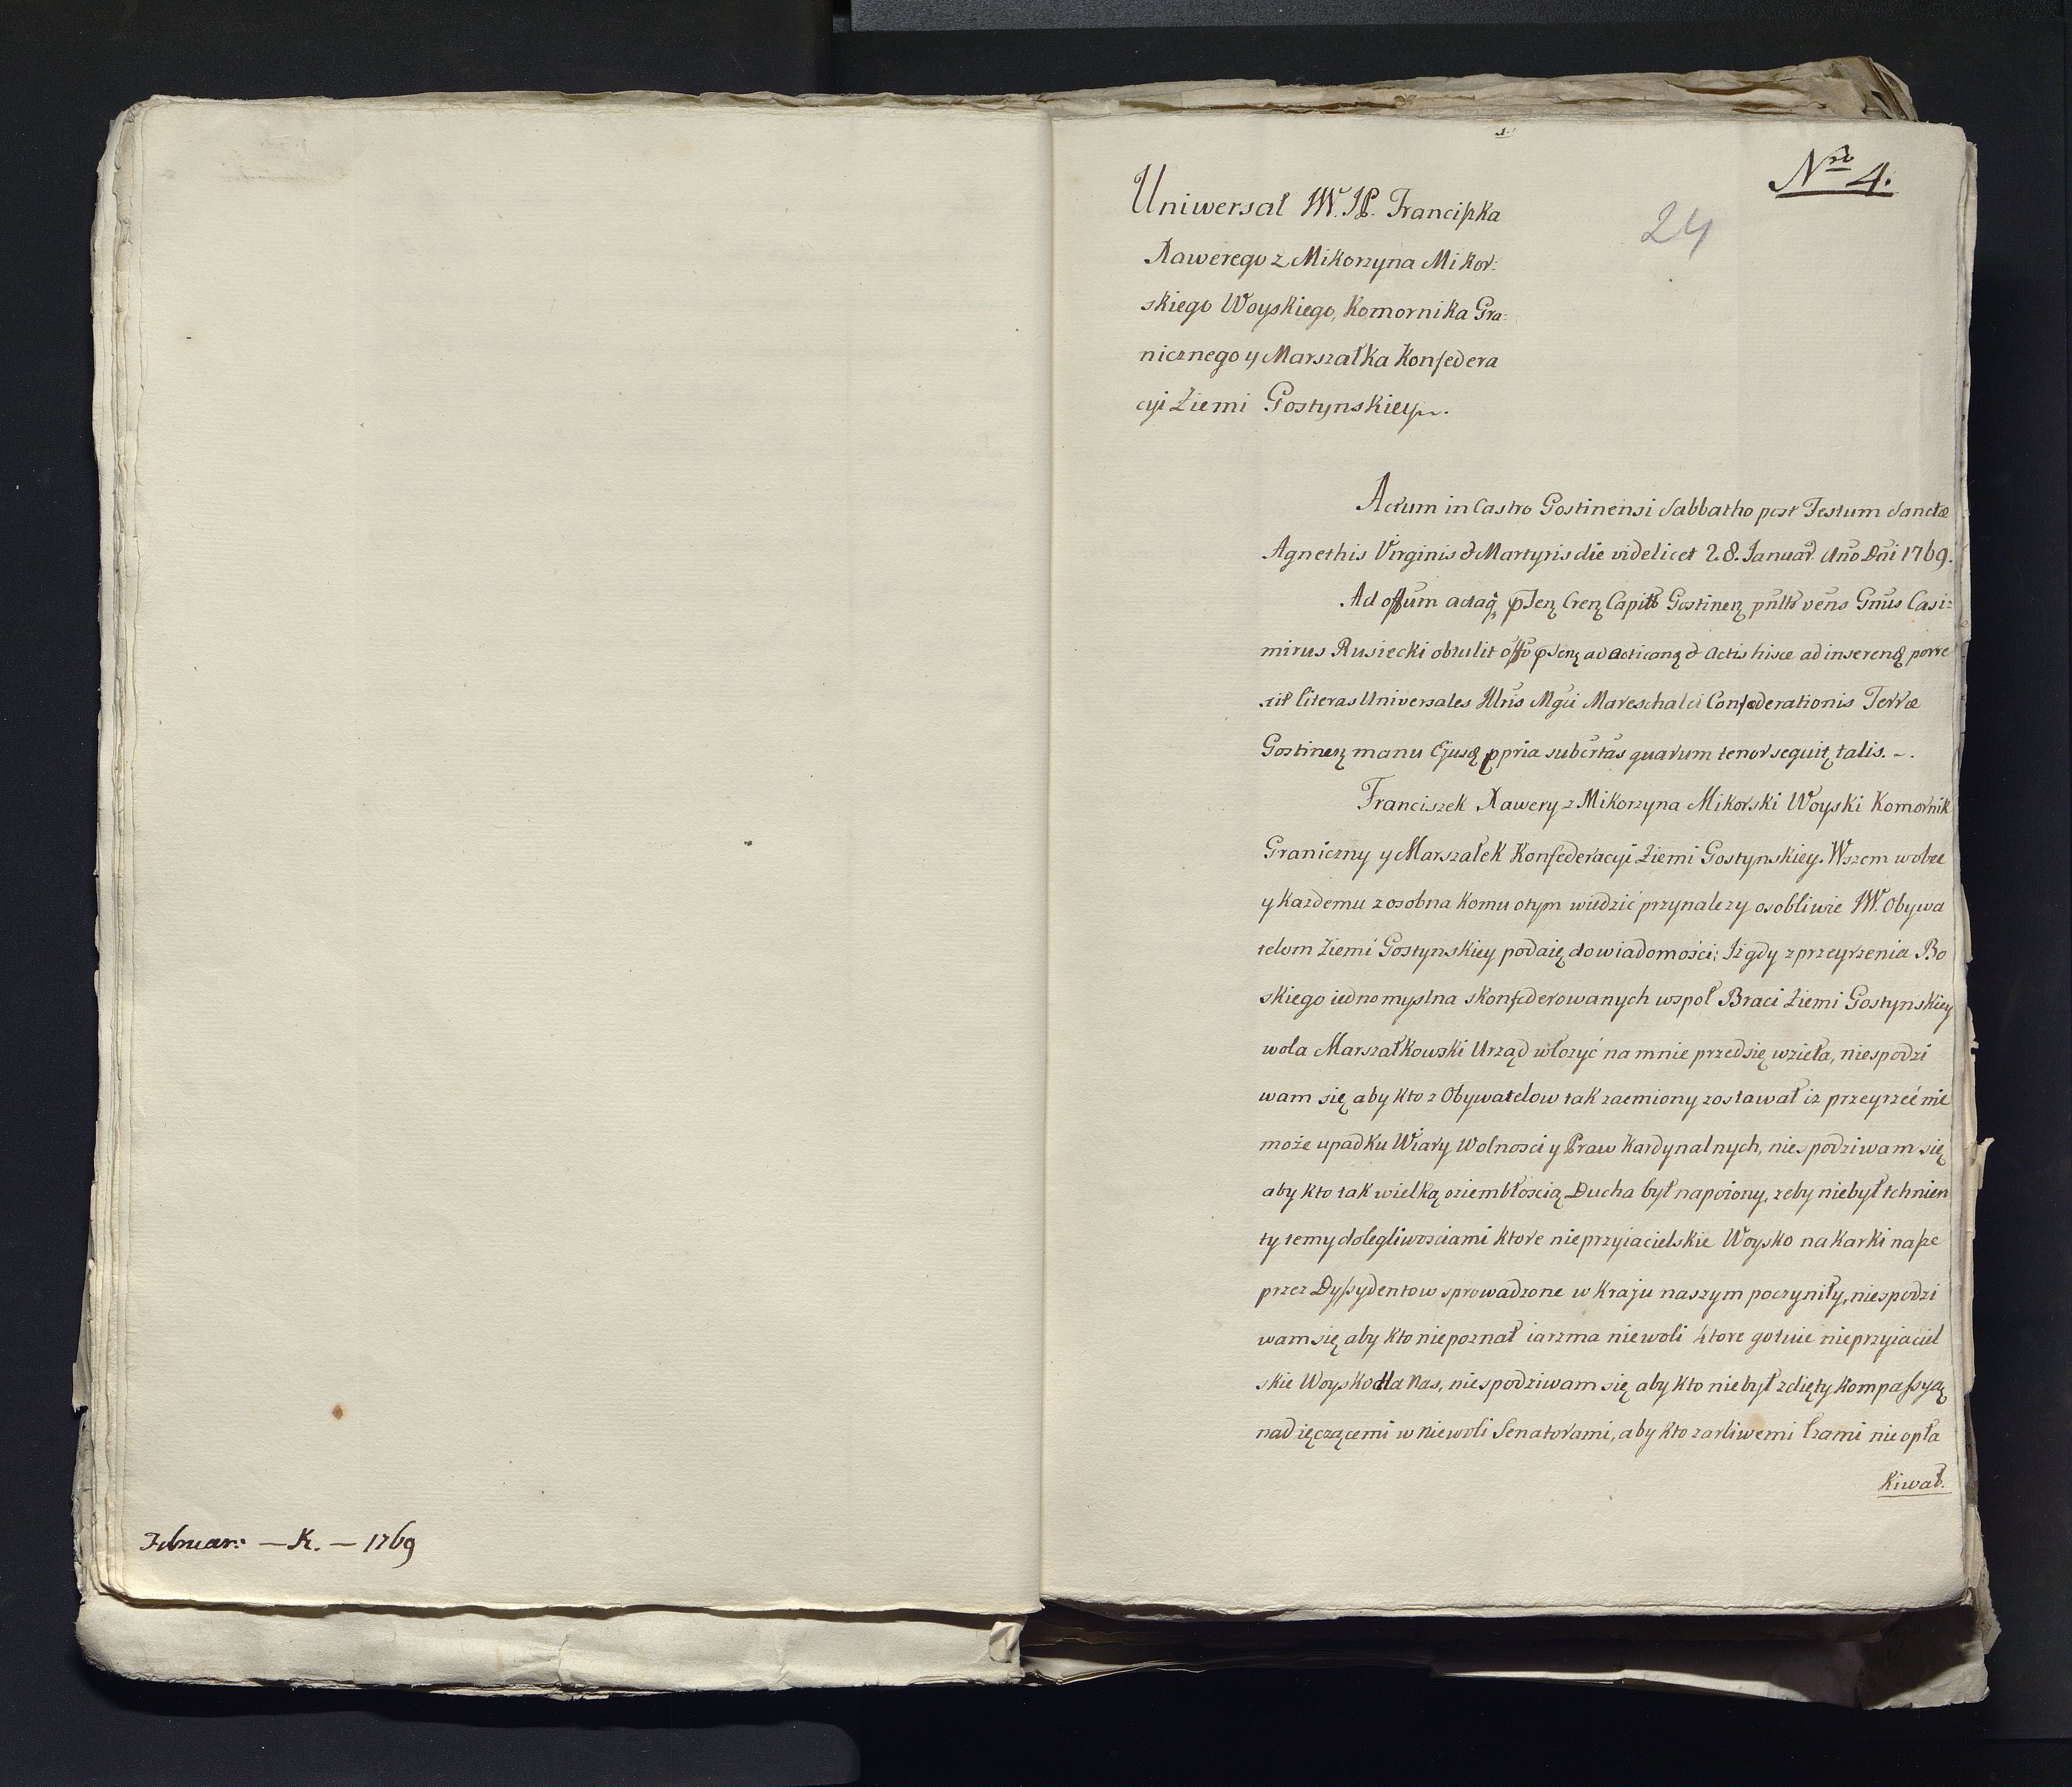 Februar: — K. — 1769
Nro 4.
24
Uniwersał JW. JP. Franciszka
Xawerego z Mikorzyna Mikor:
skiego Woyskiego, Komornika Gra:
nicznego y Marszałka Konfedera
cyi Ziemi Gostynskiey.
Actum in Castro Gostinensi Sabbatho post Festum Sanctæ
Agnethis Virginis & Martyris die videlicet 28. Januar. Año Dñi 1769.
Ad offum actaq̃ pñsen Cren Capitł Gostinen pñlłr veñs Gñus Casi:
mirus Rusiecki obtulit offo pñsen ad acticanđ & actis hisce ad inserenđ porre
xit literas Universales Illris Mgci Mareschalci Confæderationis Terræ
Gostinen manu Ejusđ ppria subsrtas quarum tenor sequitꝛ talis. -.
Franciszek Xawery z Mikorzyna Mikorski Woyski Komornik
Graniczny y Marszałek Konfederacyi Ziemi Gostynskiey. Wszem wobec
y Kazdemu zosobna Komu otym wiedzić przynalezy osobliwie JW. Obywa
telom Ziemi Gostynskiey podaię do wiadomości: Iż gdy z przeyrzenia Bo
skiego iednomyslna skonfederowanych wspoł Braci Ziemi Gostynskiey
wola Marszałkowski Urząd włozyć na mnie przedsię wzieła, niespodzi
wam się aby Kto z Obywatelow tak zaemiony zostawał iz przeyrzeć nie
może upadku Wiary Wolnosci y Praw Kardynalnych, niespodziwam się
aby kto tak wielką oziembłoscią Ducha był napoiony, zeby niebył tchnien
ty temy dolegliwosciami ktore nieprzyiacielskie Woysko na Karki nasze
przez Dyssydentow sprowadzone w Kraju naszym poczyniły, niespodzi
wam się aby Kto niepoznał iarzma niewoli ktore gotuie nieprzyiaciel
skie Woysko dla Nas, niespodziwam się aby Kto niebył zdięty Kompassyą
nad ięczącemi w niewoli Senatorami, aby Kto zarliwemi łzami nie opła
Kiwał.